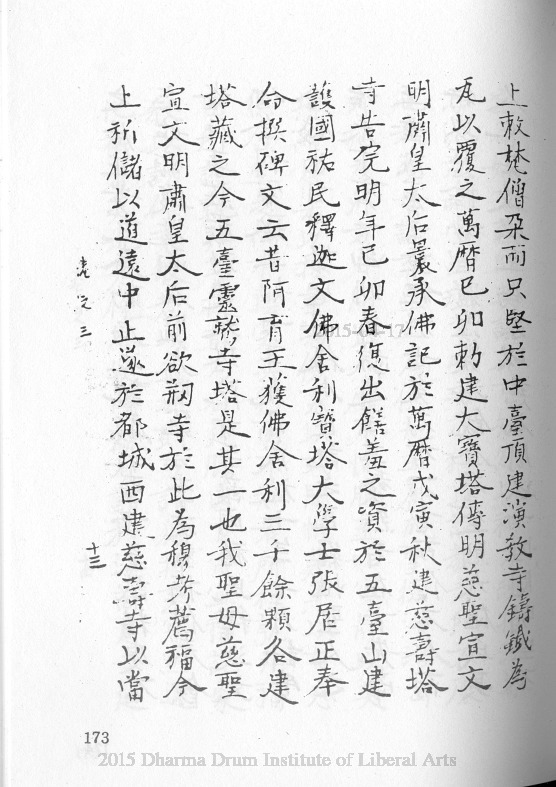 上敕梵僧朶而只堅於中臺頂建演教寺鑄鐵為
瓦以覆之萬曆己卯勅建大寶塔傳明慈聖宣文
明肅皇太后曩承佛記於萬曆戊寅秋建慈壽塔
寺告完明年己卯春復出饍羞之資於五臺山建
護國祐民釋迦文佛舍利寶塔大學士張居正奉
命撰碑文云昔阿育王獲佛舍利三千餘顆各建
塔藏之今五臺靈鷲寺塔是其一也我聖母慈聖
宣文明肅皇太后前欲剏寺於此為穆考薦福今
上祈儲以道遠中止遂於都城西建慈壽寺以當
卷之三
十三
173
2015 Dharma Drum Institute of Liberal Arts